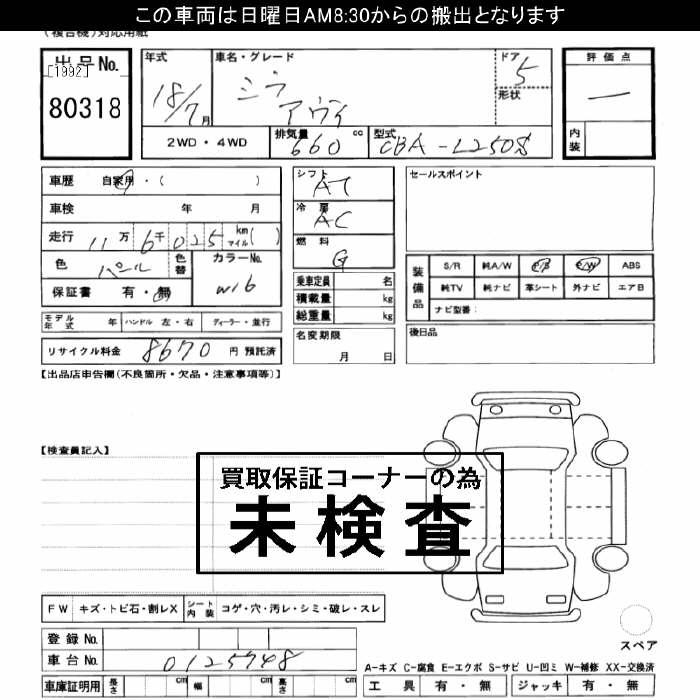 この車両は日曜日AM8:30からの搬出となります
(複合機)対応用紙
出品No.
[1992]
80318
年式
18/7月
車名・グレード
ミラ
アヴィ
ドア
5
形状
評価点
―
内装
2WD・4WD
排気量
660 cc
型式
CBA-L250S
車歴 自家用・( )
車検 年 月
走行 11万6千025 km マイル( )
色 パール 色替
カラーNo.
W16
保証書 有・無
モデル年式 年 ハンドル 左・右 ディーラー・並行
リサイクル料金 8670 円 預託済
シフト
AT
冷房
AC
燃料
G
乗車定員 名
積載量 kg
総重量 kg
名変期限
月 日
セールスポイント
装備品
S/R 純A/W P/S P/W ABS
純TV 純ナビ 革シート 外ナビ エアB
ナビ型番:
後日品
【出品店申告欄(不良箇所・欠品・注意事項等)】
【検査員記入】
買取保証コーナーの為
未検査
FW キズ・トビ石・割レX シート内装 コゲ・穴・汚レ・シミ・破レ・スレ
登録No.
車台No. 0125748
車庫証明用 長さ cm 幅 cm 高さ cm
スペア
A-キズ C-腐食 E-エクボ S-サビ U-凹ミ W-補修 XX-交換済
工具 有・無 ジャッキ 有・無